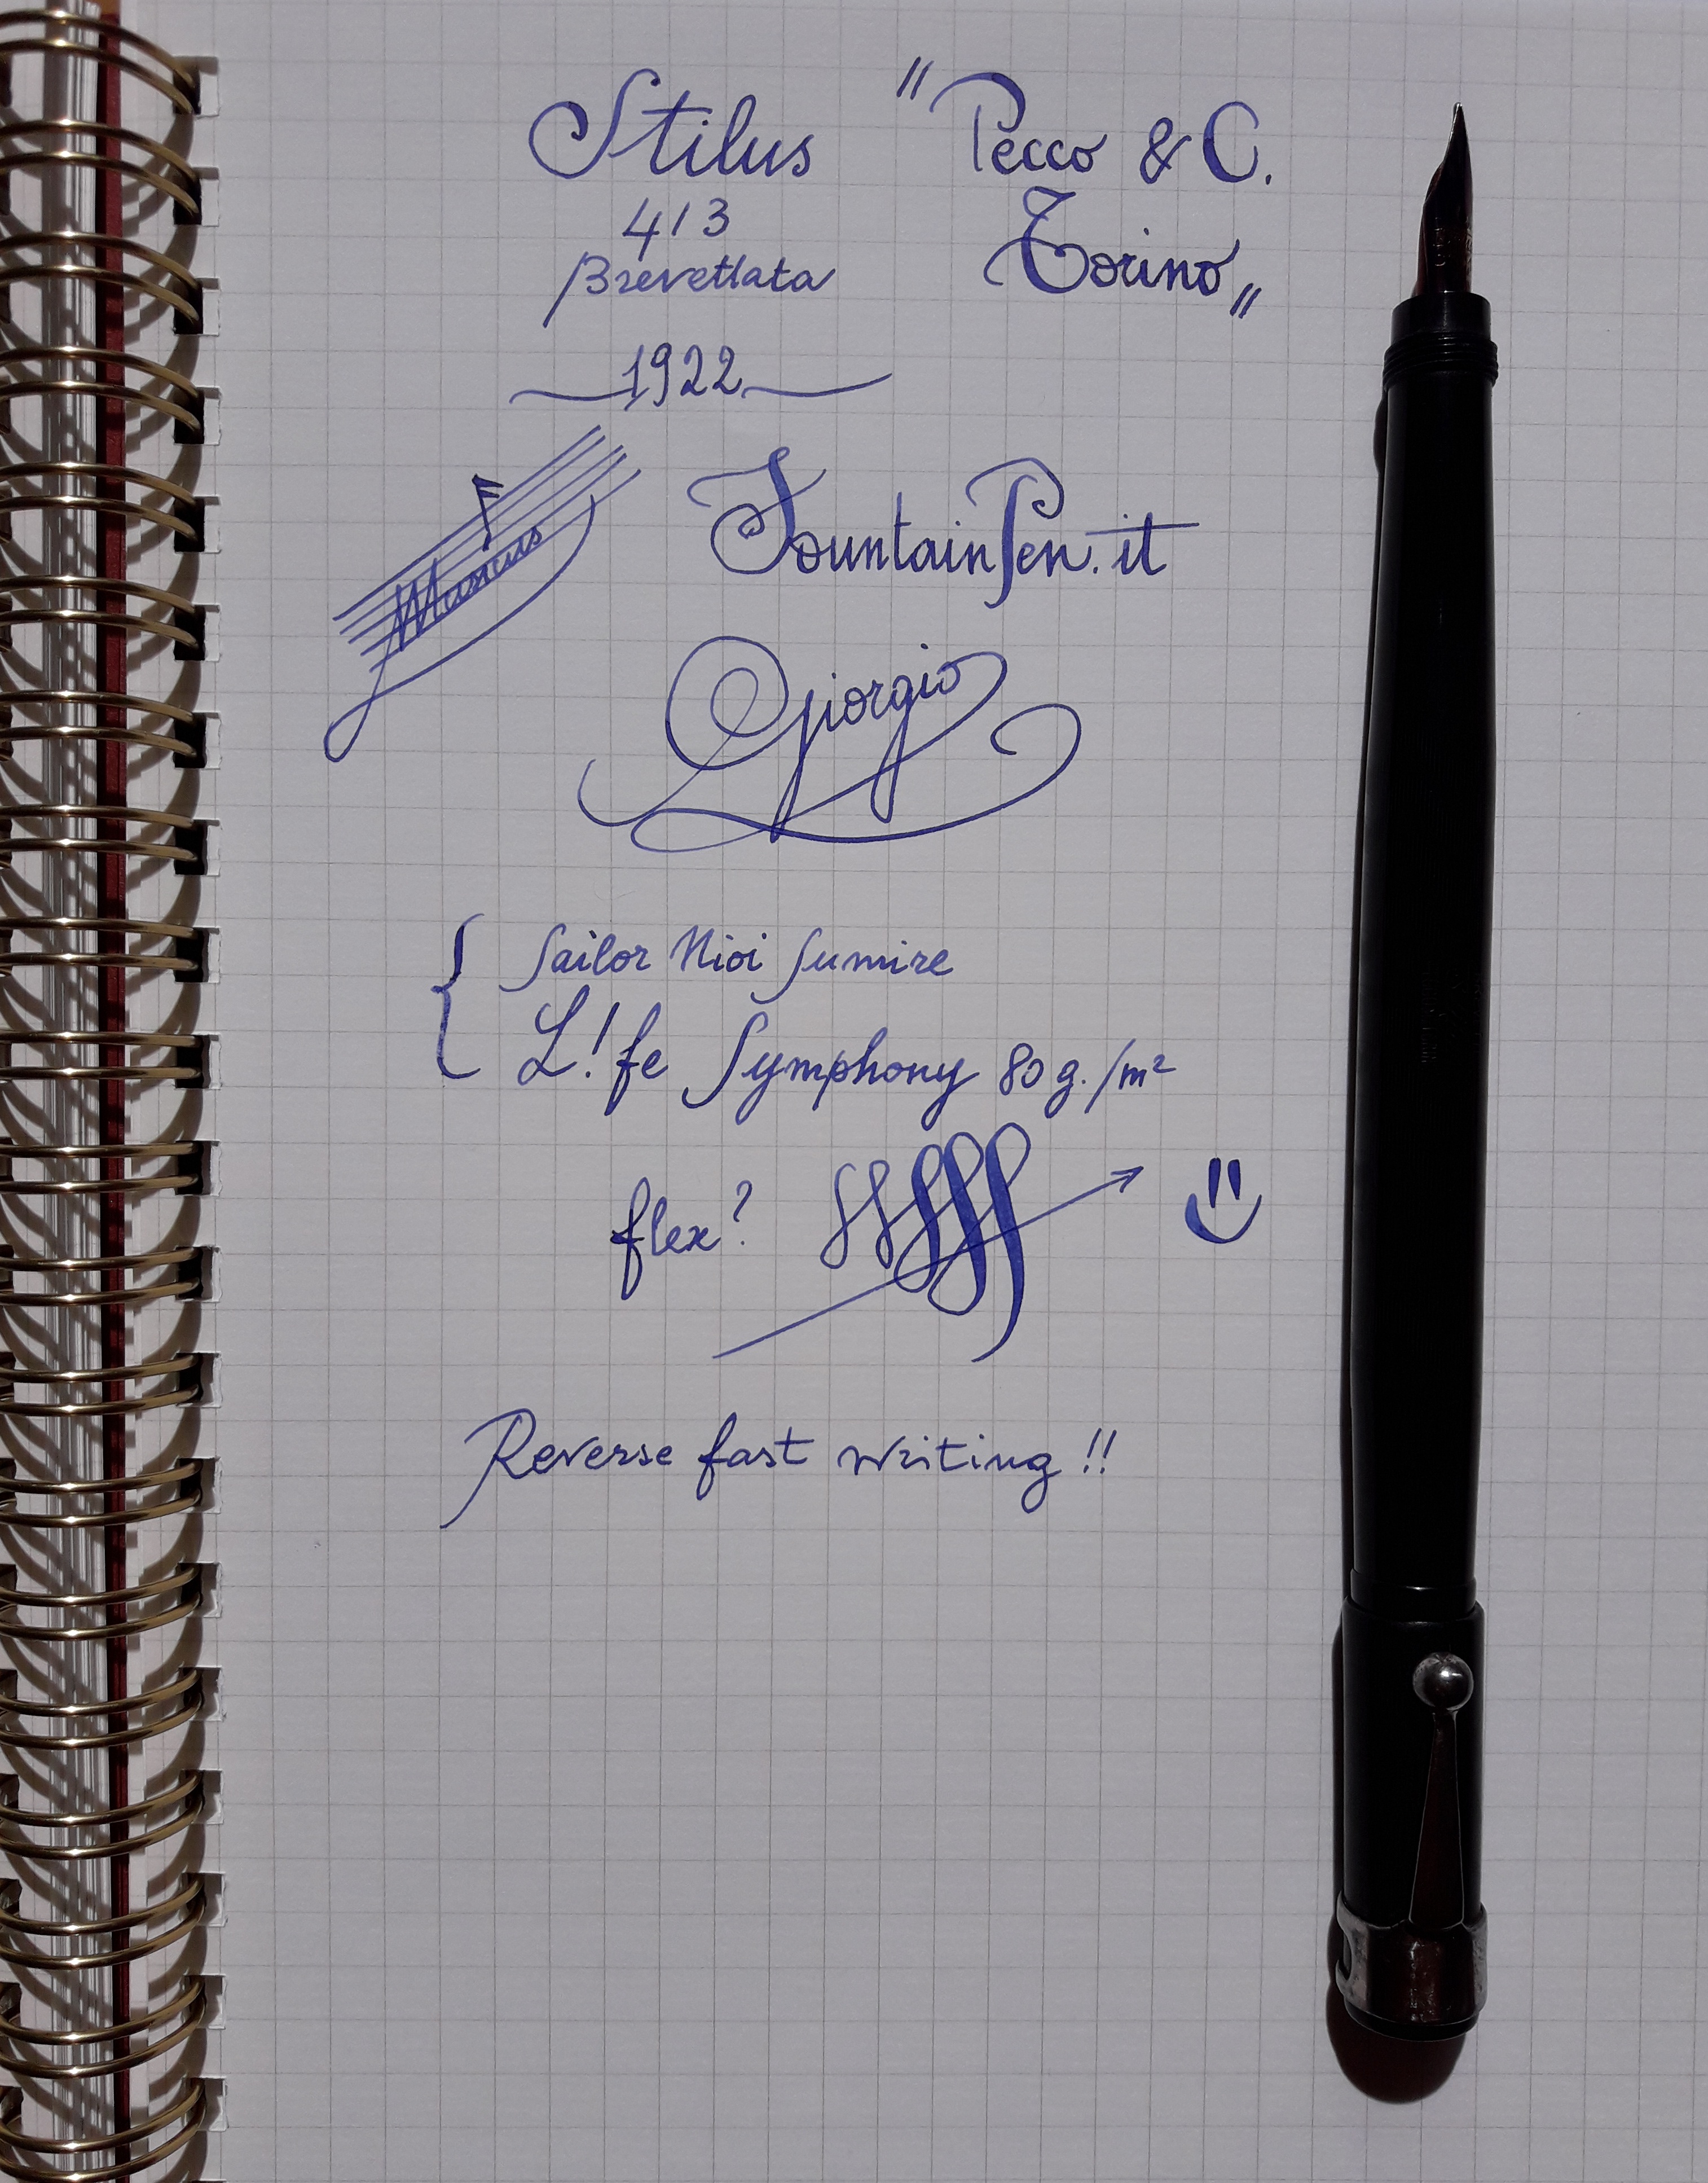 Stilus "Pecco & C.
413 Torino"
Brevettata
1922
Munus
FountainPen.it
Giorgio
Sailor Nioi Sumire
L!fe Symphony 80 g./m²
flex?
Reverse fast writing!!